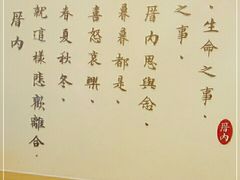 、生命之事。
之事、
厝內思與念、
暴暴都是。
喜怒哀樂、
春夏秋冬、
就這樣悲歡離合。
厝內
厝內